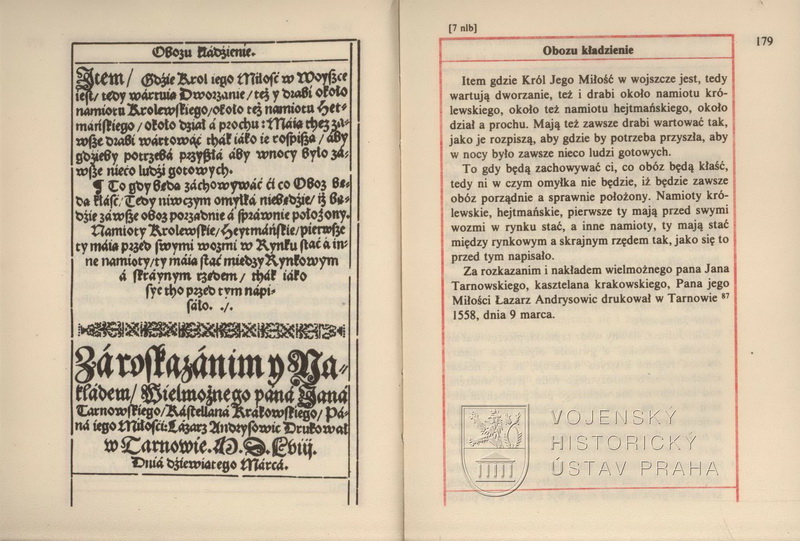 Obozu kládzienie.
Item / Gdzie Krol iego Miłość w Woyszce
iest / tedy wártuia Dworzánie / też y drabi około
namiotu Krolewskiego / około też namiotu Het-
máńskiego / około dział á prochu : Máia thez zá-
wsze drabi wártowáć thák iáko ie rospisza / áby
gdzieby potrzebá przyszłá áby wnocy było zá-
wsze nieco ludzi gotowych.
¶ To gdy beda záchowywáć ći co Oboz be-
da kłáść / Tedy niwczym omyłká niebedzie / iż be-
dzie záwsze oboz porzadnie á spráwnie położony.
Namioty Krolewskie / Heytmáńskie / pierwsze
ty máia przed swymi wozmi w Rynku stać á in-
ne namioty / ty máia stać miedzy Rynkowym
á skráynym rzedem / thák iáko
sye tho przed tym nápi-
sáło. ./.
Zá roskazánim y Na-
kłádem / Wielmożnego páná Janá
Tarnowskiego / Kásztellaná Krákowskiego / Pá-
ná iego Miłości: Łázarz Andrysowic Drukował
w Tarnowie. M. D. Lviij.
Dniá dziewiatego Márcá.
[7 nlb]
179
Obozu kładzienie
Item gdzie Król Jego Miłość w wojszcze jest, tedy
wartują dworzanie, też i drabi około namiotu kró-
lewskiego, około też namiotu hejtmańskiego, około
dział a prochu. Mają też zawsze drabi wartować tak,
jako je rozpiszą, aby gdzie by potrzeba przyszła, aby
w nocy było zawsze nieco ludzi gotowych.
To gdy będą zachowywać ci, co obóz będą kłaść,
tedy ni w czym omyłka nie będzie, iż będzie zawsze
obóz porządnie a sprawnie położony. Namioty kró-
lewskie, hejtmańskie, pierwsze ty mają przed swymi
wozmi w rynku stać, a inne namioty, ty mają stać
między rynkowym a skrajnym rzędem tak, jako się to
przed tym napisało.
Za rozkazanim i nakładem wielmożnego pana Jana
Tarnowskiego, kasztelana krakowskiego, Pana jego
Miłości Łazarz Andrysowic drukował w Tarnowie 87
1558, dnia 9 marca.
VOJENSKÝ
HISTORICKÝ
ÚSTAV PRAHA